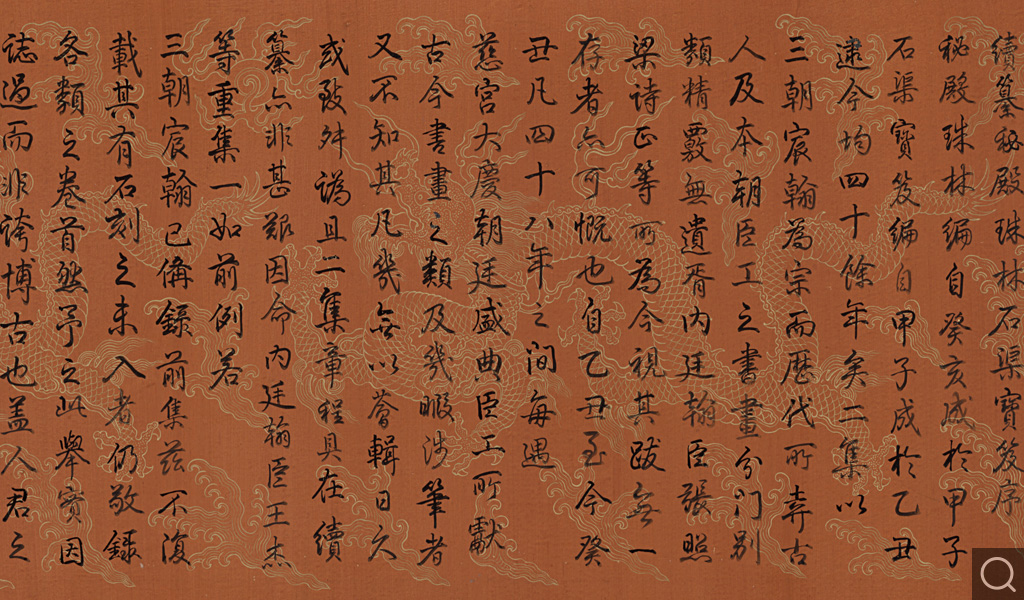 續纂秘殿珠林石渠寶笈序
秘殿珠林編自癸亥成於甲子
石渠寶笈編自甲子成於乙丑
逮今均四十餘年矣二集以
三朝宸翰為宗而歷代所弆古
人及本朝臣工之書畫分门别
類精覈無遺胥内廷翰臣張照
梁诗正等所為今視其跋無一
存者亦可慨也自乙丑至今癸
丑凡四十八年之间每遇
慈宫大慶朝廷盛典臣工所獻
古今書畫之類及幾暇涉筆者
又不知其凡幾無以薈輯日久
或致舛譌且二集章程具在續
纂亦非甚艱因命内廷翰臣王杰
等重集一如前例若
三朝宸翰已俻錄前集茲不復
載其有石刻之未入者仍敬録
各類之卷首然予之此舉實因
誌過而非誇博古也盖人君之